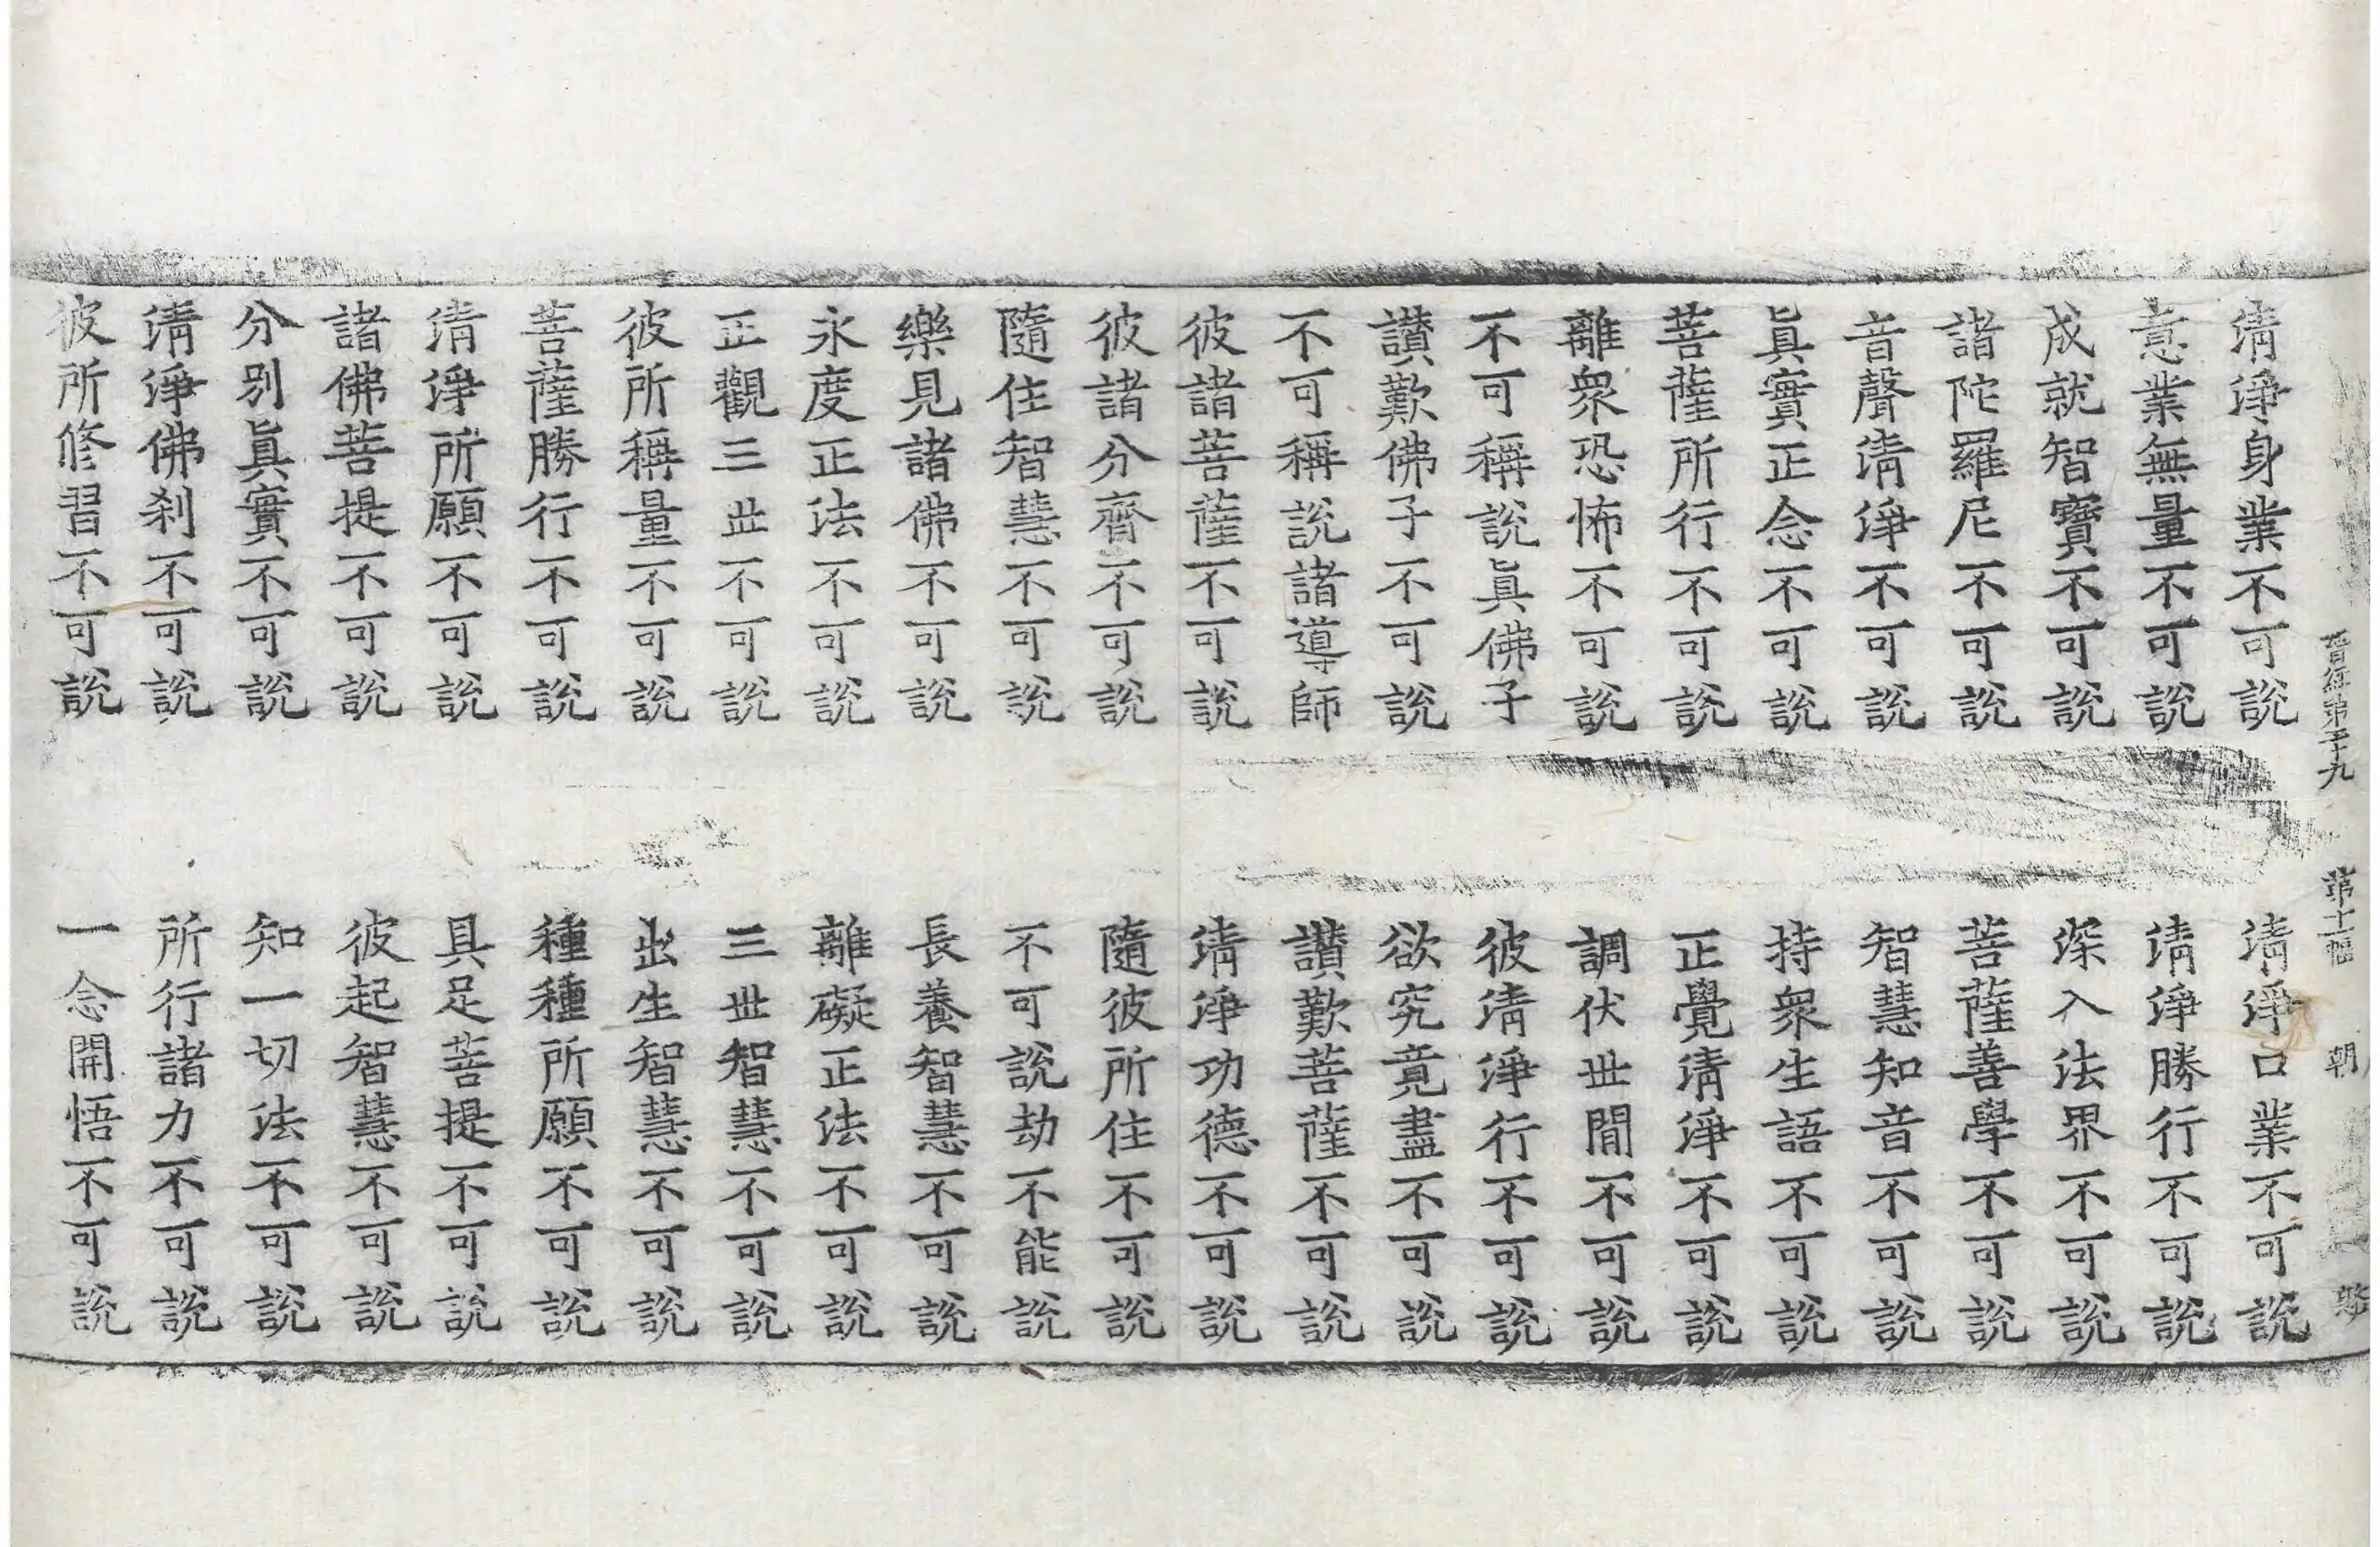 晋經第二十九 第十一幅 朝
清淨身業不可說 清淨口業不可說
意業無量不可說 清淨勝行不可說
成就智寶不可說 深入法界不可說
諸陀羅尼不可說 菩薩善學不可說
音聲清淨不可說 智慧知音不可說
眞實正念不可說 持衆生語不可說
菩薩所行不可說 正覺清淨不可說
離衆恐怖不可說 調伏世閒不可說
不可稱說眞佛子 彼清淨行不可說
讃歎佛子不可說 欲究竟盡不可說
不可稱說諸導師 讃歎菩薩不可說
彼諸菩薩不可說 清淨功德不可說
彼諸分齊不可說 隨彼所住不可說
隨住智慧不可說 不可說劫不能說
樂見諸佛不可說 長養智慧不可說
永度正法不可說 離礙正法不可說
正觀三世不可說 三世智慧不可說
彼所稱量不可說 出生智慧不可說
菩薩勝行不可說 種種所願不可說
清淨所願不可說 具足菩提不可說
諸佛菩提不可說 彼起智慧不可說
分別眞實不可說 知一切法不可說
清淨佛刹不可說 所行諸力不可說
彼所修習不可說 一念開悟不可說